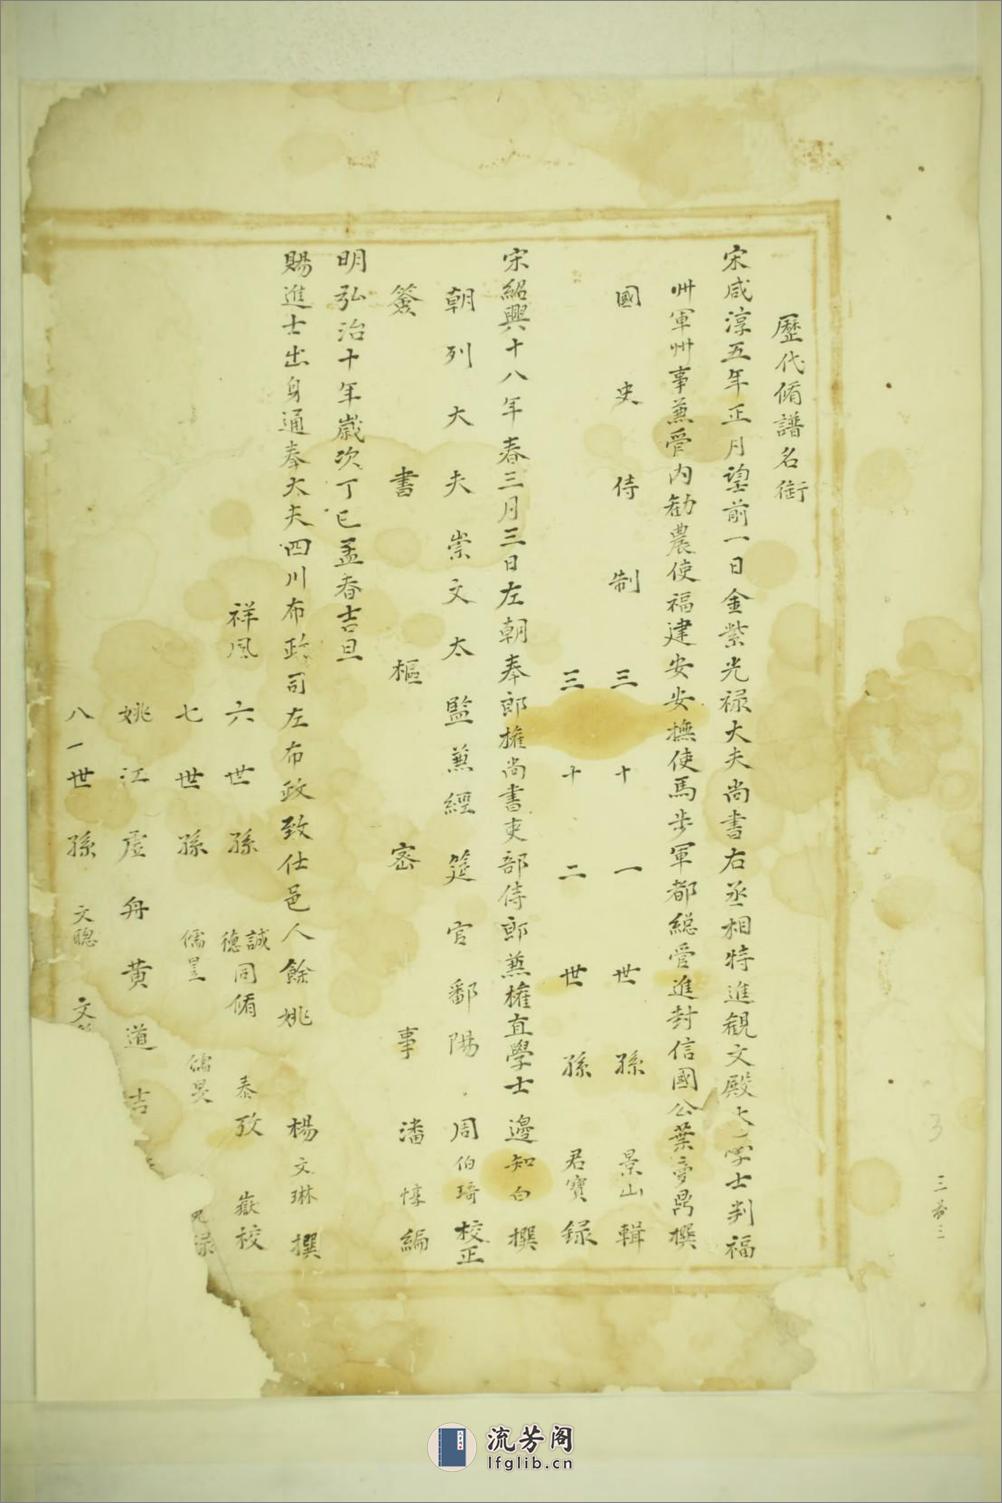 歷代脩譜名銜
宋咸淳五年正月望前一日金紫光祿大夫尚書右丞相特進観文殿大學士判福
州軍州事兼管內勸農使福建安安撫使馬步軍都總管進封信國公葉夢鼎撰
國史侍制三十一世孫景山輯
三十二世孫君寶錄
宋紹興十八年春三月三日左朝奉郎權尚書吏部侍郎兼權直學士邊知白撰
朝列大夫崇文太監兼經筵官鄱陽周伯琦校正
簽書樞密事潘惇編
明弘治十年歲次丁巳孟春吉旦
賜進士出身通奉大夫四川布政司左布政致仕邑人餘姚楊文琳撰
祥鳳六世孫誠德同脩泰孜嶽校
七世孫儒
姚江虛舟黃道吉
八一世孫文聰文
三
3
流芳阁
lfglib.cn